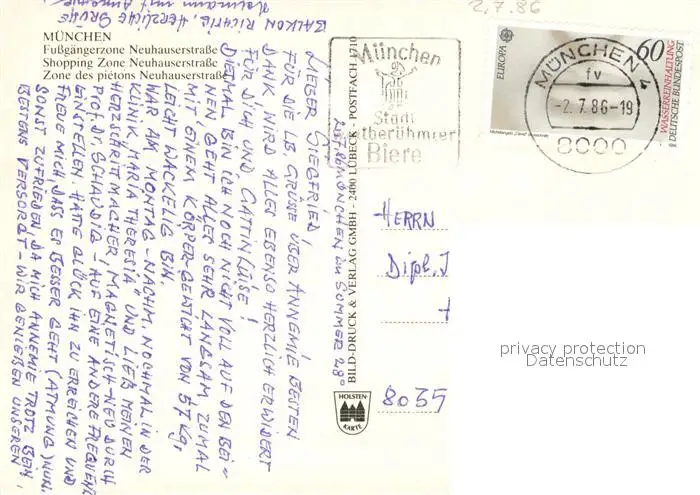 2.7.86
MÜNCHEN
Fußgängerzone Neuhauserstraße
Shopping Zone Neuhauserstraße
Zone des piétons Neuhauserstraße
München
Stadt
weltberühmter
Biere
EUROPA
60
WASSERREINHALTUNG
DEUTSCHE BUNDESPOST
MÜNCHEN 4
fv
-2.7.86-19
8000
BILD-DRUCK & VERLAG GMBH - 2400 LÜBECK - POSTFACH 1710
HOLSTEN-
KARTE
2.7.86 MÜNCHEN IM SOMMER 28°
LIEBER SIEGFRIED,
FÜR DIE LB. GRÜSSE ÜBER ANNEMIE BESTEN
DANK WIRD ALLES EBENSO HERZLICH ERWIDERT
FÜR DICH UND GATTIN LUISE!
DIESMAL BIN ICH NOCH NICHT VOLL AUF DEN BEI-
NEN, GEHT ALLES SEHR LANGSAM, ZUMAL
MIT EINEM KÖRPER-GEWICHT VON 57 Kg,
LEICHT WACKELIG BIN.
WAR AM MONTAG-NACHM. NOCHMAL IN DER
KLINIK „MARIA THERESIA" UND LIESS MEINEN
HERZSCHRITTMACHER, MAGNETISCH-NEU DURCH
PROF. DR. SCHAUDIG - AUF EINE ANDERE FREQUENZ
EINSTELLEN. HATTE GLÜCK IHN ZU ERREICHEN UND
FREUE MICH DASS ES BESSER GEHT (ATMUNG) NUN.
SONST ZUFRIEDEN, DA MICH ANNEMIE TROTZ BEIN
BESTENS VERSORGT - WIR GENIESSEN UNSEREN
BALKON RICHTIG, HERZLICHE GRÜSSE
HERRN
Dipl. I
8035
privacy protection
Datenschutz